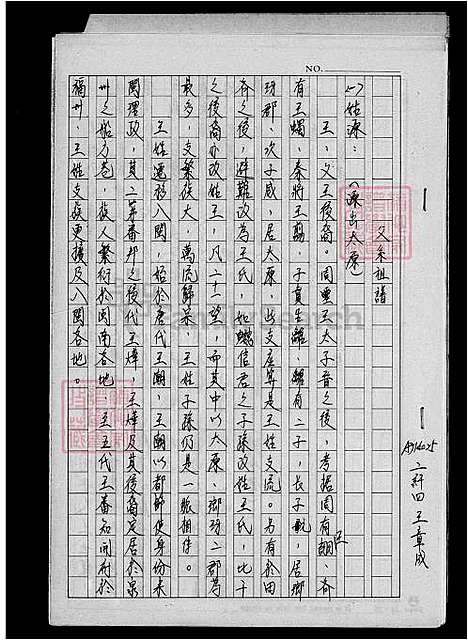 NO.
A914025
二科四王章成
父系祖譜
㈠姓源：（源出太原）
王：文王後裔。周靈王太子晉之後，考据周有王翮、齊
有王蠋，秦將王翦，子賁生離，離有二子，長子軏，居瑯
琊郡，次子威，居太原，此支應算是王姓支流。另有於田
齊之後，避難改為王氏，如信君之子孫改姓王氏，比干
之後裔亦改姓王，凡二十一望，而其中以太原、瑯琊二郡為
最多，支繁族大，萬流歸宗，王姓子孫仍是一脈相傳。
王姓遷移入閩，始於唐代王潮，王潮以都節使身份來
閩理政，其二弟審邦之後代王燁，王燁及其後裔定居於泉
州之船方巷，族人繁衍於閩南各地，至五代王審知開府於
福州，王姓支族更擴及入閩各地。